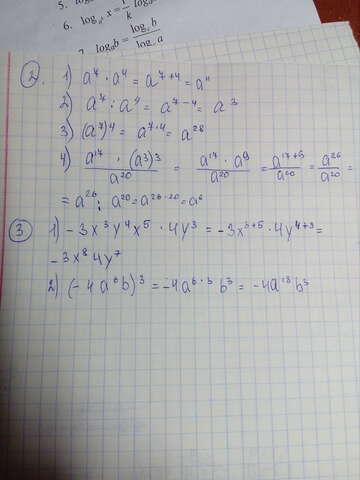 5. log
6. log x = 1/k log
7. logₐb = log_c b / log_c a
2. 1) a⁷ · a⁴ = a⁷⁺⁴ = a¹¹
2) a⁷ : a⁴ = a⁷⁻⁴ = a³
3) (a⁷)⁴ = a⁷·⁴ = a²⁸
4) a¹⁷ · (a³)³ / a²⁰ = a¹⁷ · a⁹ / a²⁰ = a¹⁷⁺⁹ / a²⁰ = a²⁶ / a²⁰ =
= a²⁶ : a²⁰ = a²⁶⁻²⁰ = a⁶
3 1) -3x³y⁴x⁵ · 4y³ = -3x³⁺⁵ · 4y⁴⁺³ =
-3x⁸4y⁷
2) (-4a⁶b)³ = -4a⁶·³b³ = -4a¹⁸b³